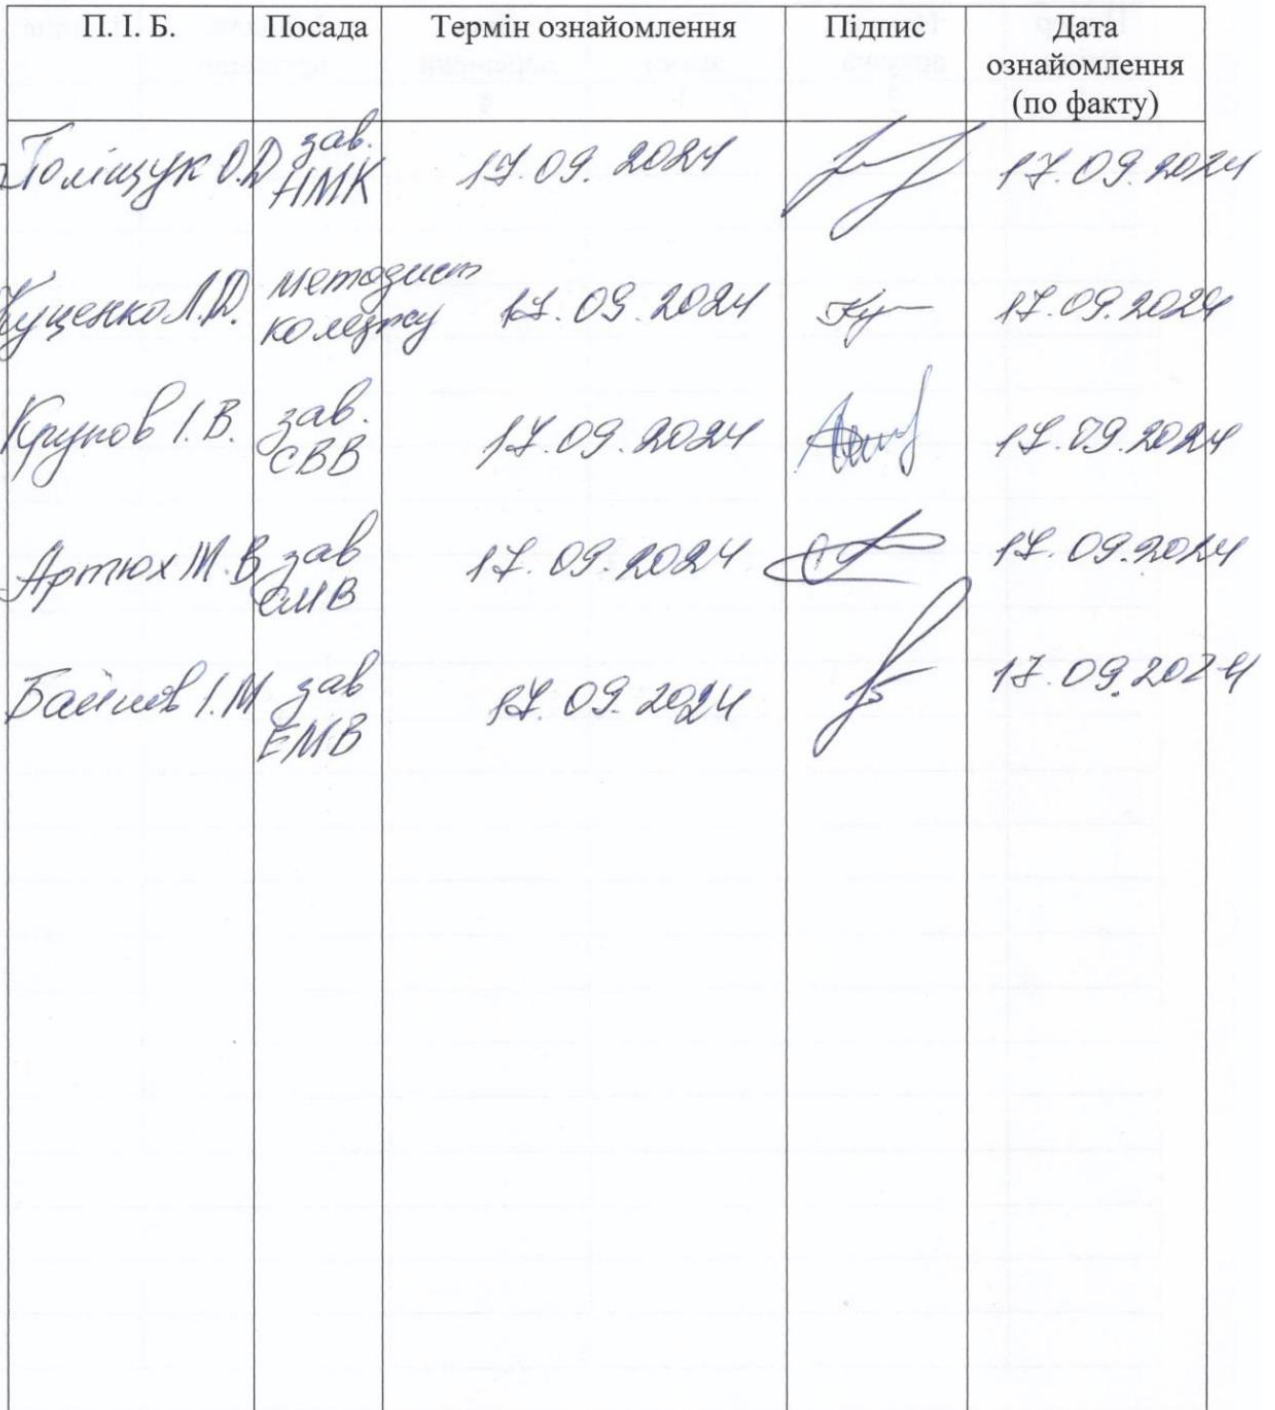 П.І. Б. Посада Термін ознайомлення Підпис Дата
ознайомлення
(по факту)
Поліщук О.Д зав. 17.09.2024 17.09.2024
НМК
Куценко Л.Д. методист 17.09.2024 17.09.2024
коледжу
Крупов І.В. зав. 17.09.2024 17.09.2024
СВВ
Артюх М.В зав 17.09.2024 17.09.2024
СМВ
І.М зав 17.09.2024 17.09.2024
ЕМВ